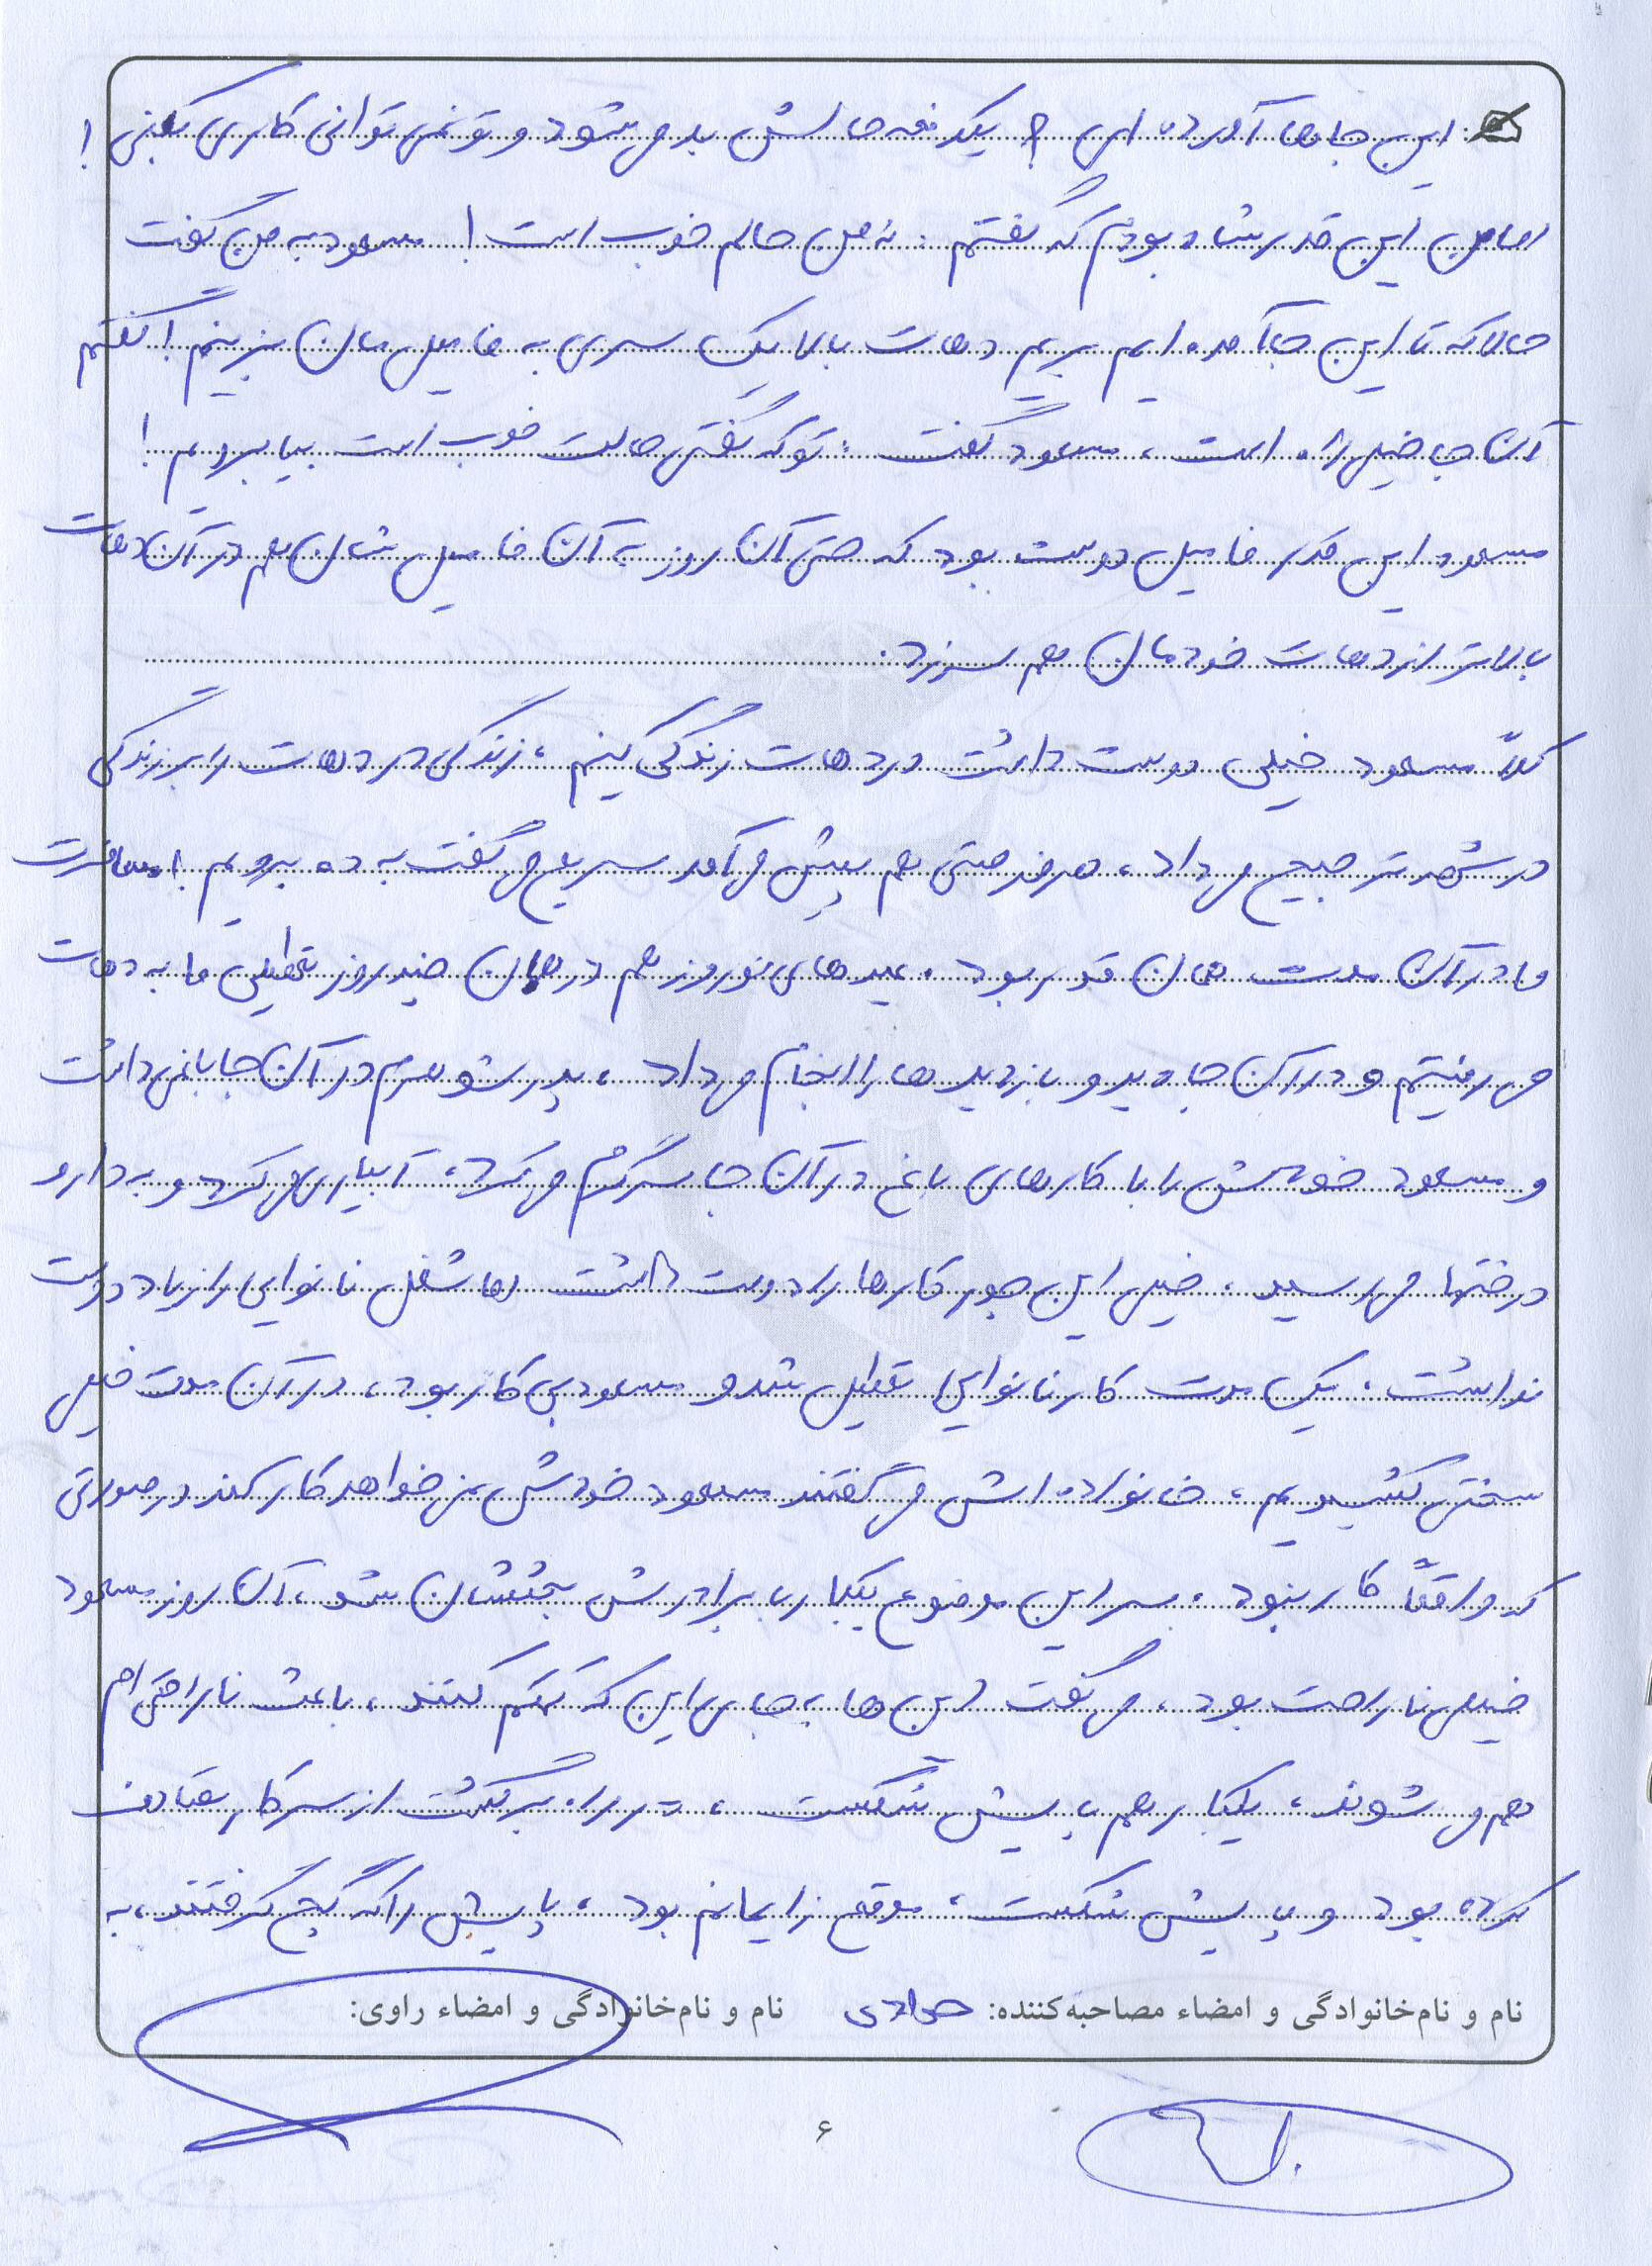 این جاها آورده ای؟ یکدفعه حالش بد می شود و تو نمی توانی کاری بکنی!
اما من این قدر شاد بودم که گفتم: نه من حالم خوب است! مسعود به من گفت
حالا که تا این جا آمده ایم بریم دهات بالا یک سری به فامیل مان بزنیم! گفتم
آن جا خیلی راه است، مسعود گفت: تو که گفتی حالت خوب است بیا برویم!
مسعود این قدر فامیل دوست بود که حتی آن روز به آن فامیل شان هم در آن دهات
بالاتر از دهات خودمان هم سر زد.
کلاً مسعود خیلی دوست داشت در دهات زندگی کنیم، زندگی در دهات را بر زندگی
در شهر ترجیح می داد، هر فرصتی هم پیش می آمد سریع می گفت به ده برویم! مسافرت
ما در آن مدت همان قدر بود. عیدهای نوروز هم در همان چند روز تعطیلی ما به دهات
می رفتیم و در آن جا دید و بازدیدها را انجام می داد، پدر شوهرم در آن جا باغی داشت
و مسعود خودش را با کارهای باغ در آن جا سرگرم می کرد، آبیاری می کرد و به دارو
درختها می رسید، خیلی این جور کارها را دوست داشت اما شغل نانوایی را زیاد دوست
نداشت، یک مدت کار نانوایی تعطیل شد و مسعود بی کار بود، در آن مدت خیلی
سختی کشیدیم، خانواده اش می گفتند مسعود خودش نمی خواهد کار کند در صورتی
که واقعاً کار نبود، سر این موضوع یکبار با برادرش بحثشان شد، آن روز مسعود
خیلی ناراحت بود، می گفت این ها به جای این که کمکم کنند، باعث ناراحتی ام
هم می شوند، یکبار هم پایش شکست، در راه برگشت از سر کار تصادف
کرده بود و پایش شکست، موقع زایمانم بود، پایش را که گچ گرفتند، به
نام و نام‌خانوادگی و امضاء مصاحبه‌کننده: نام و نام‌خانوادگی و امضاء راوی:
۶